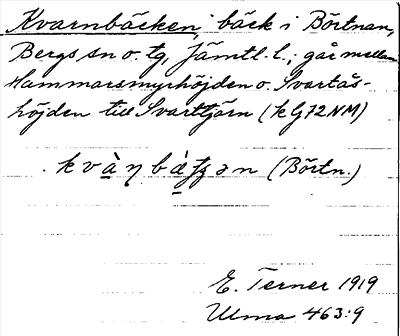 Kvarnbäcken, bäck i Börtnan,
Bergs sn o. tg, Jämtl. l.; går mellan
Hammarsmyrhöjden o. Svartås-
höjden till Svarttjärn (kG72NM)
(Börtn.)
E. Terner 1919
Ulma 463:9